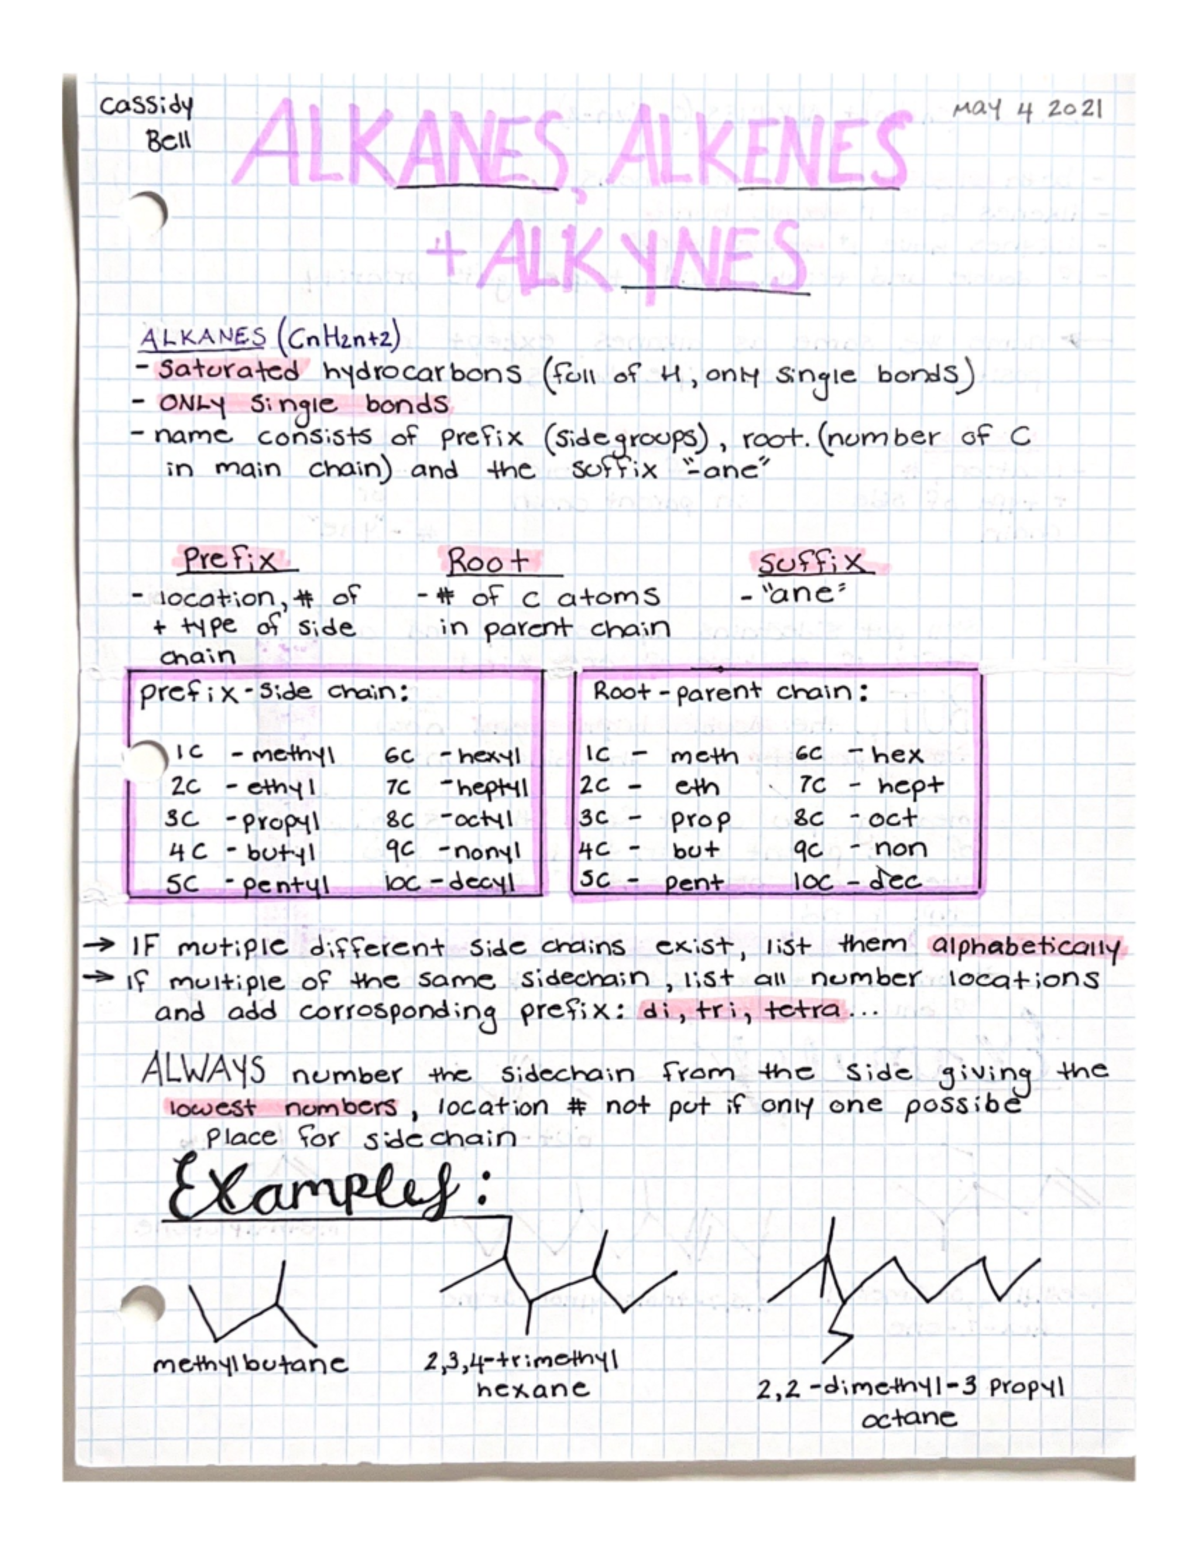 Cassidy
Bell
May 4 2021
ALKANES, ALKENES
+ ALKYNES
ALKANES (CnH2n+2)
- saturated hydrocarbons (full of H, only single bonds)
- ONLY single bonds
- name consists of prefix (sidegroups), root. (number of C
in main chain) and the suffix "-ane"
Prefix
- location, # of
+ type of side
chain
Root
- # of C atoms
in parent chain
Suffix
- "ane"
prefix - side chain:
1C - methyl 6C - hexyl
2C - ethyl 7C - heptyl
3C - propyl 8C - octyl
4C - butyl 9C - nonyl
5C - pentyl 10C - decyl
Root - parent chain:
1C - meth 6C - hex
2C - eth 7C - hept
3C - prop 8C - oct
4C - but 9C - non
5C - pent 10C - dec
→ IF mutiple different side chains exist, list them alphabetically
→ if multiple of the same sidechain, list all number locations
and add corrosponding prefix: di, tri, tetra...
ALWAYS number the sidechain from the side giving the
lowest numbers, location # not put if only one possibe
place for sidechain
Examples:
methylbutane
2,3,4-trimethyl
hexane
2,2-dimethyl-3 propyl
octane